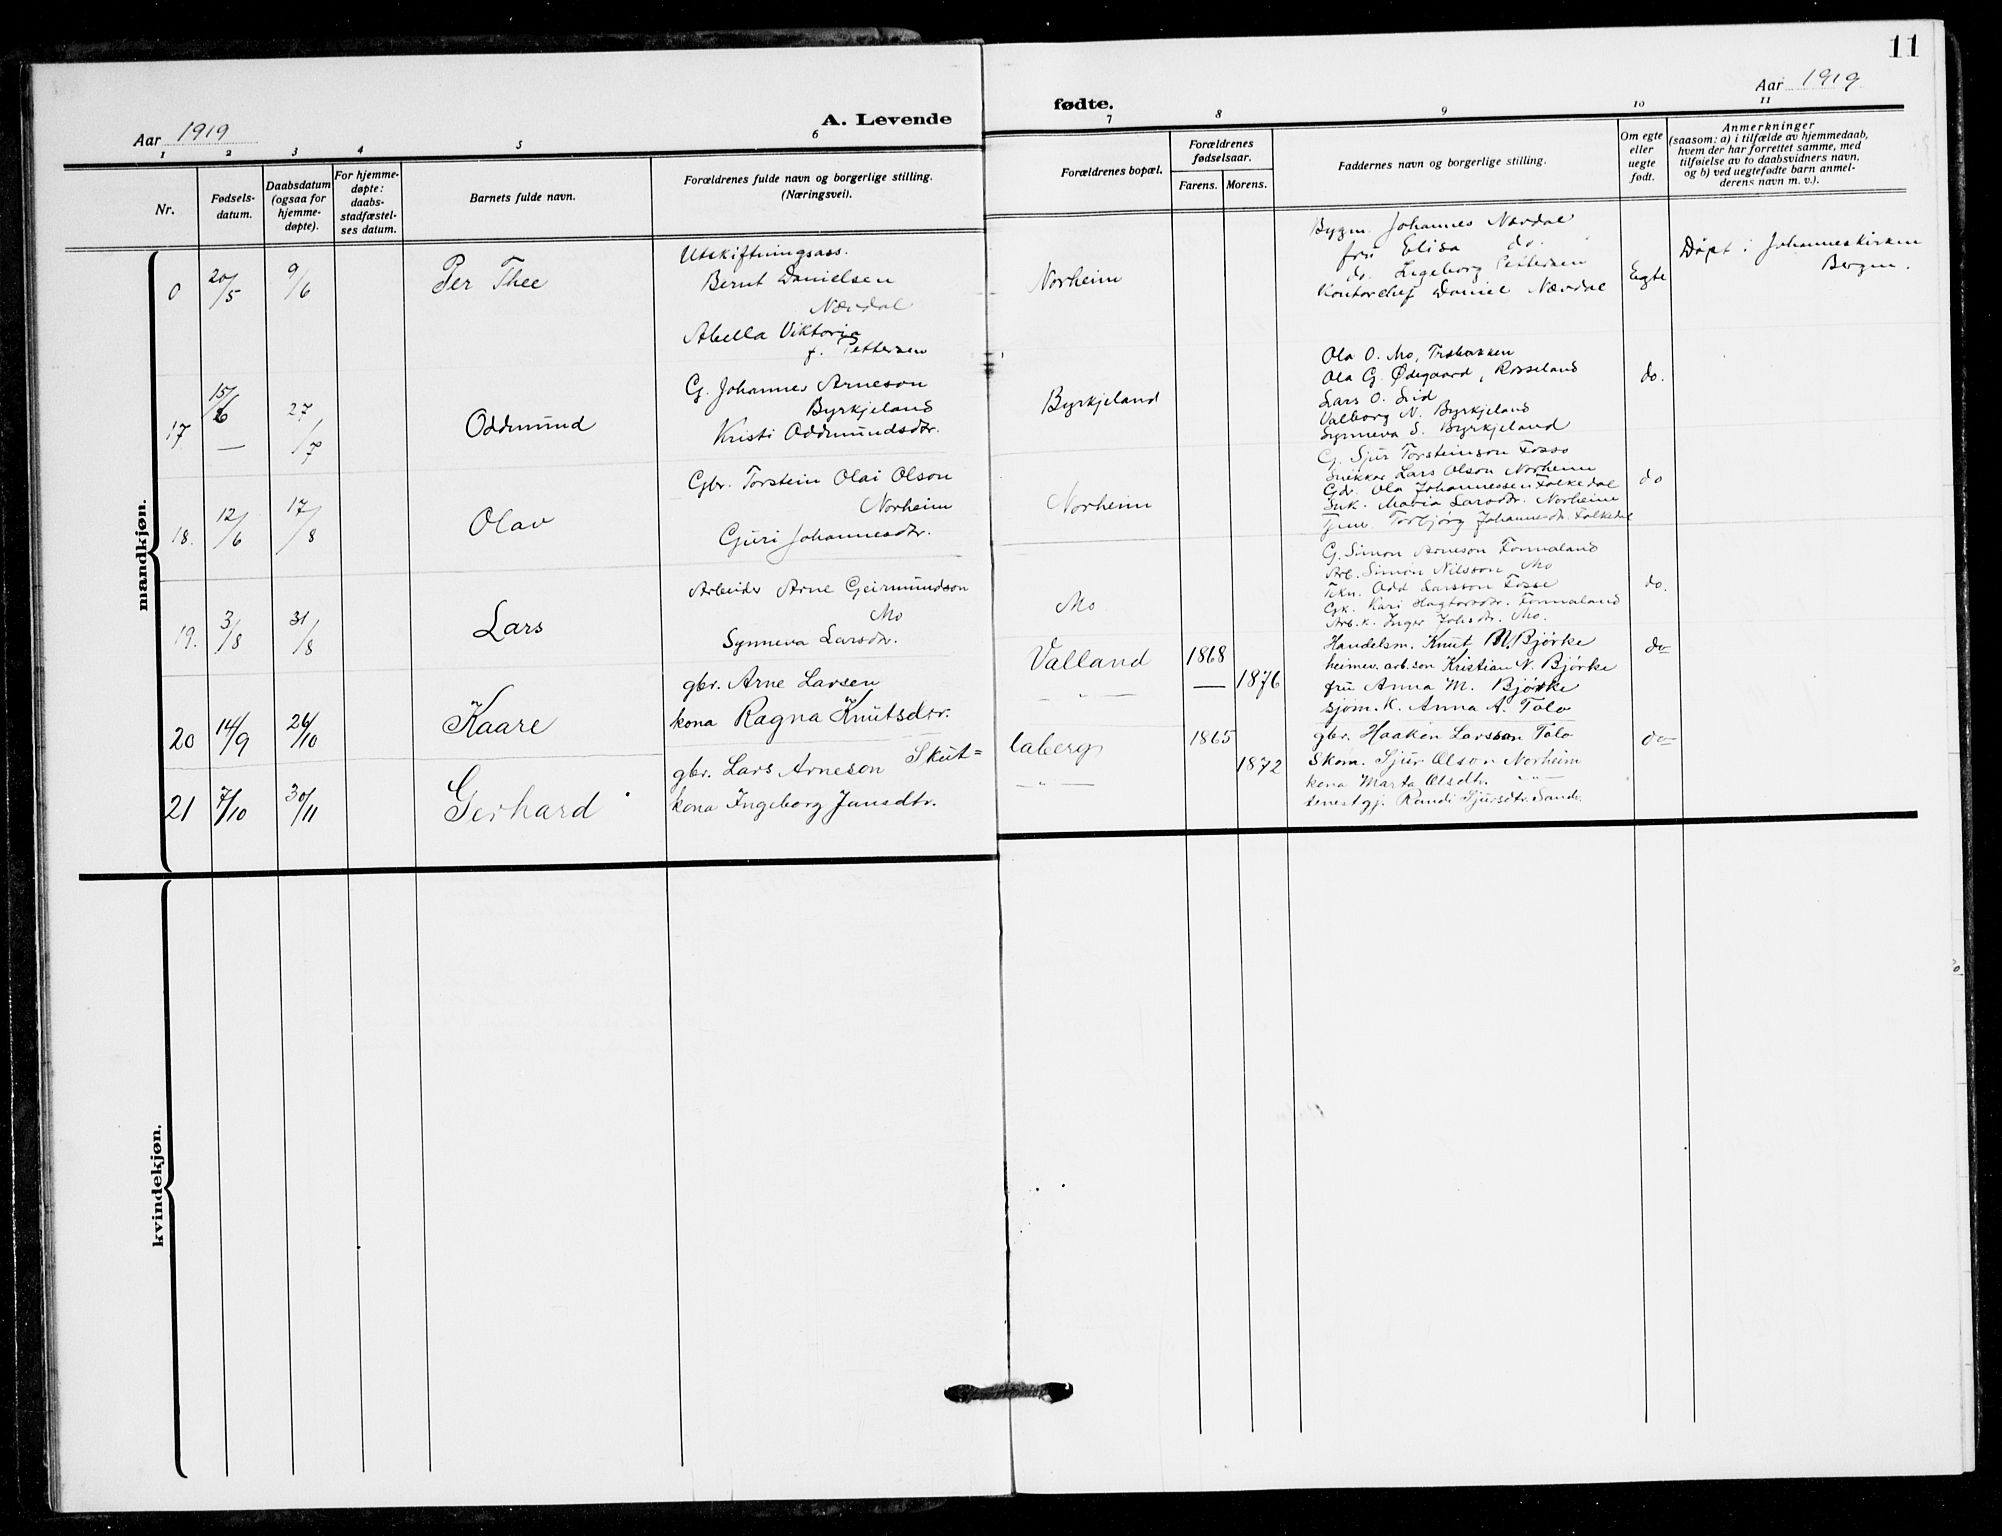 11
Aar 1919
A. Levende fødte.
Aar 1919
1 2 3 4 5 6 7 8 9 10 11
Nr.
Fødsels-
datum.
Daabsdatum
(ogsaa for
hjemme-
døpte).
For hjemme-
døpte:
daabs-
stadfæstel-
ses datum.
Barnets fulde navn.
Forældrenes fulde navn og borgerlige stilling.
(Næringsvei).
Forældrenes bopæl.
Forældrenes
fødselsaar.
Farens. Morens.
Faddernes navn og borgerlige stilling.
Om egte
eller
uegte
født.
Anmerkninger
(saasom: a) i tilfælde av hjemmedaab,
hvem der har forrettet samme, med
tilføielse av to daabsvidners navn,
og b) ved uegtefødte barn anmel-
derens navn m. v.).
mandkjøn.
0 20/5 9/6 Per Thee
Utskiftningsass.
Bernt Danielsen
Nærdal
Abella Viktoria
f. Pettersen
Norheim
Bygm. Johannes Nærdal
fru Elisa do.
do. Ingeborg Pettersen
Kontorchef Daniel Nærdal
Egte
Døpt i Johanneskirken
Bergen.
17 15/6 — 27/7 Oddmund
G. Johannes Arneson
Byrkjeland
Kristi Oddmundsdtr.
Byrkjeland
Ola O. Mo, Træbakken
Ola G. Ødegaard, Rosseland
Lars O. Lid
Valborg N. Byrkjeland
Synneva S. Byrkjeland
do.
18. 12/6 17/8 Olav
Gbr. Torstein Olai Olson
Norheim
Guri Johannesdtr.
Norheim
G. Sjur Torsteinson Fosso
Snikkar Lars Olson Norheim
Gdr. Ola Johannessen Falkedal
Snk. Maria Larsdtr. Norheim
Torbjørg Johannesdtr. Falkedal
do
19. 3/8 31/8 Lars
Arbeider Arne Geirmundson
Mo
Synneva Larsdtr.
Mo
G. Simon Arneson Fonnaland
Arb. Simon Nilsson Mo
Odd Larsson Fosse
Gk. Kari Hagtorsdtr. Fonnaland
Arb.k. Inger Johsdtr. Mo.
do.
20 14/9 26/10 Kaare
gbr. Arne Larsen
kona Ragna Knutsdtr.
Valland 1868
— " — — 1876
Handelsm. Knut N. Bjørke
heimev. arb. son Kristian N. Bjørke
fru Anna M. Bjørke
sjøm. k. Anna A. Tolo
do
21 7/10 30/11 Gerhard
gbr. Lars Arneson Skut=
kona Ingeborg Jansdtr.
laberg 1865
— " — 1872
gbr. Haakon Larsson Tolo
Skom. Sjur Olson Norheim
kona Marta Olsdtr. — " —
tenestgj. Randi Sjursdtr. Sandv.
do
kvindekjøn.